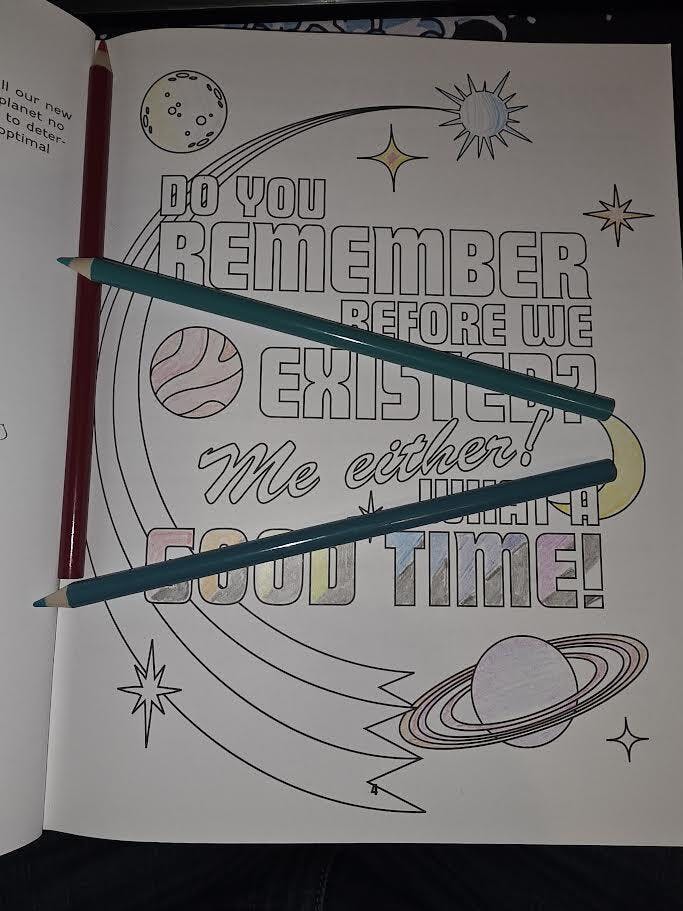 ll our new
planet no
to deter-
optimal
DO YOU
REMEMBER
BEFORE WE
EXISTED?
Me either!
WHAT A
GOOD TIME!
4